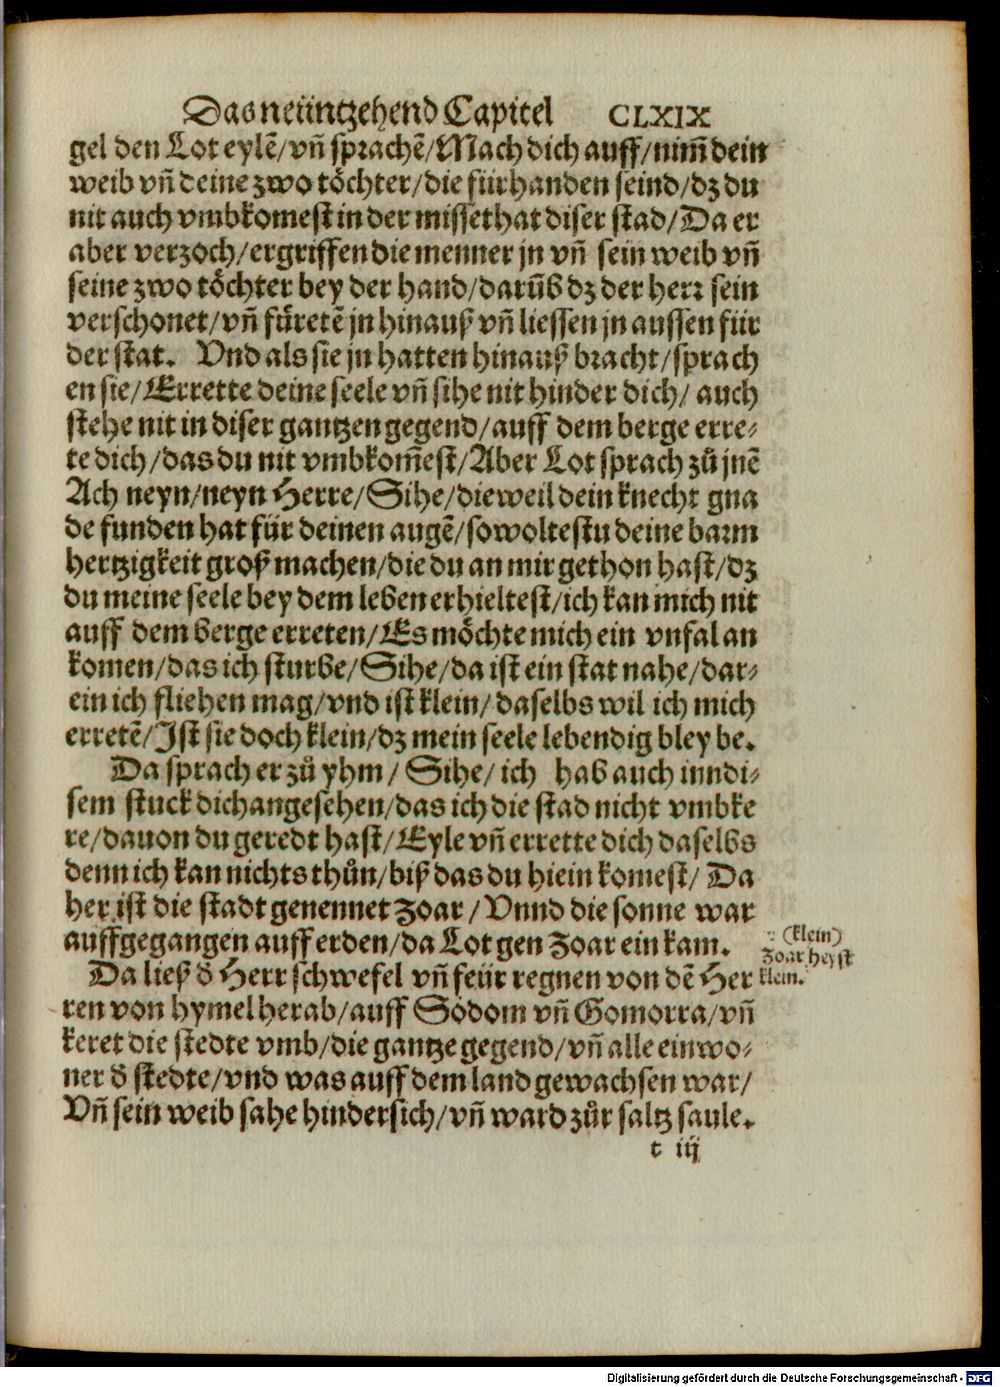 Das neüntzehend Capitel CLXIX
gel den Lot eylẽ/vñ sprachẽ/Mach dich auff/nim̃ dein
weib vñ deine zwo töchter/die für handen seind/dz du
nit auch vmbkomest in der missethat diser stad/Da er
aber verzoch/ergriffen die menner jn vñ sein weib vñ
seine zwo töchter bey der hand/darũb dz der herr sein
verschonet/vñ fůretẽ jn hinauß vñ liessen jn aussen für
der stat. Vnd als sie jn hatten hinauß bracht/sprach
en sie/Errette deine seele vñ sihe nit hinder dich/ auch
stehe nit in diser gantzen gegend/auff dem berge erre⸗
te dich/das du nit vmbkom̃est/Aber Lot sprach zů jnẽ
Ach neyn/neyn Herre/Sihe/die weil dein knecht gna
de funden hat für deinen augẽ/so woltestu deine barm
hertzigkeit groß machen/die du an mir gethon hast/dz
du meine seele bey dem leben erhieltest/ich kan mich nit
auff dem berge erreten/Es möchte mich ein vnfal an
komen/das ich sturbe/Sihe/da ist ein stat nahe/dar⸗
ein ich fliehen mag/vnd ist klein/daselbs wil ich mich
erretẽ/Ist sie doch klein/dz mein seele lebendig bleybe.
Da sprach er zů yhm/ Sihe/ ich hab auch inn di⸗
sem stuck dich angesehen/das ich die stad nicht vmbke
re/dauon du geredt hast/Eyle vñ errette dich daselbs
denn ich kan nichts thůn/biß das du hiein komest/ Da
her ist die stadt genennet Zoar/Vnnd die sonne war
auffgegangen auff erden/da Lot gen Zoar ein kam.
(klein)
Zoar heyst
klein.
Da ließ d̕ Herr schwefel vñ feür regnen von dẽ Her
ren von hymel herab/auff Sodom vñ Gomorra/vñ
keret die stedte vmb/die gantze gegend/vñ alle einwo⸗
ner d̕ stedte/vnd was auff dem land gewachsen war/
Vñ sein weib sahe hindersich/vñ ward zůr saltz saule.
t iij
Digitalisierung gefördert durch die Deutsche Forschungsgemeinschaft - DFG